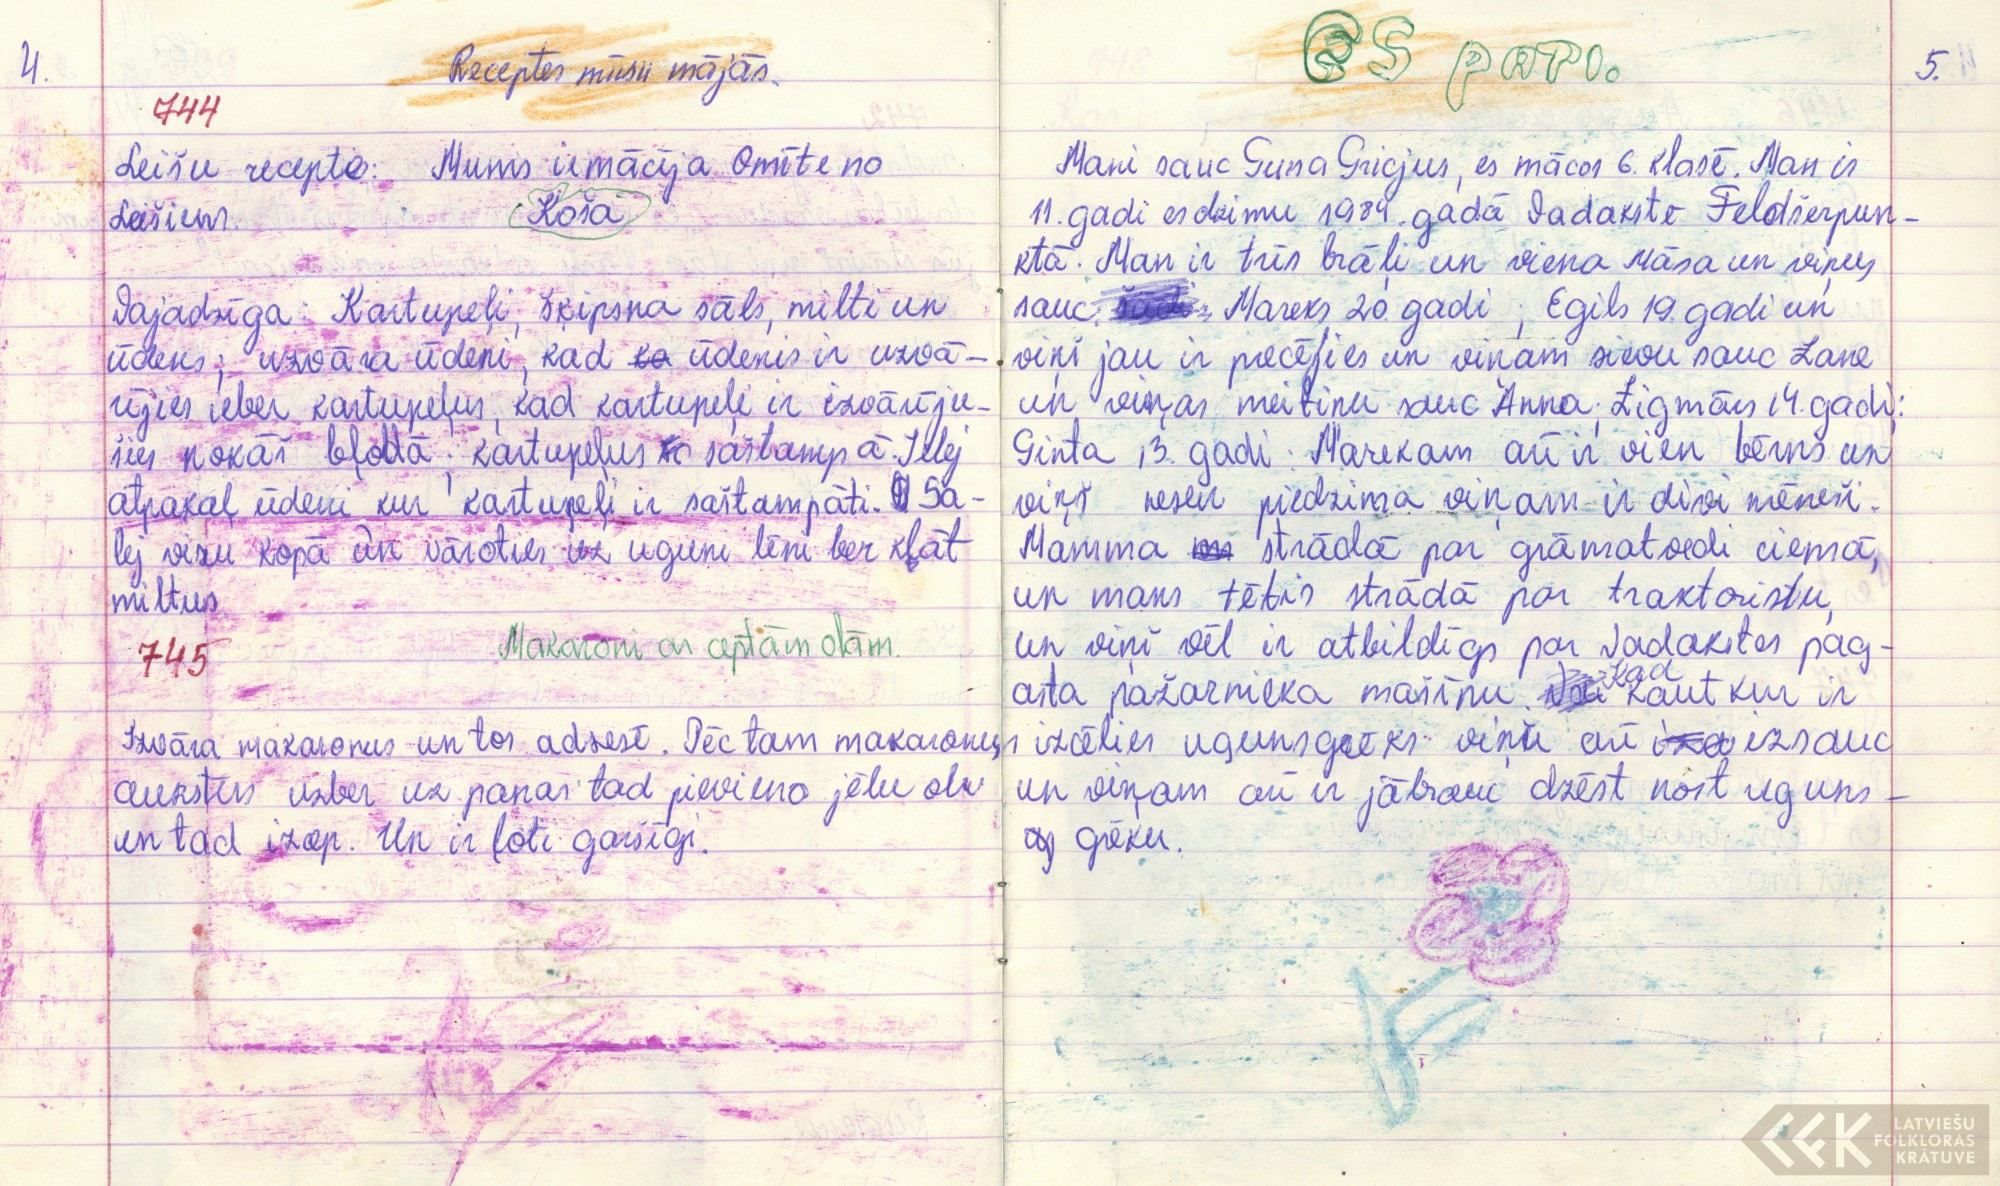 4.
Receptes mūsu mājās.
744
Leišu recepte: Mums iemācīja Omīte no
Leišiem. Koša
Vajadzīga: Kartupeļi, šķipsna sāls, milti un
ūdens; uzvāra ūdeni, kad ūdenis ir uzvā-
rījies ieber kartupeļus, kad kartupeļi ir izvārīju-
šies nokāš bļodā. kartupeļus sāštampā. Ielej
atpakaļ ūdeni kur kartupeļi ir saštampāti. Sa-
lej visu kopā un vāroties uz uguni lēni ber klāt
miltus.
745
Makaroni ar ceptām olām.
Izvāra makaronus un tos adzesē. Pēc tam makaronus
aukstus uzber uz panas tad pievieno jēlu olu
un tad izcep. Un ir ļoti garšīgi.
ES pati.
5.
Mani sauc Guna Gricjus, es mācos 6. klasē. Man ir
11. gadi es dzimu 1984. gadā Vadakstē Feldšerpun-
ktā. Man ir trīs brāļi un viena Māsa un viņus
sauc: Mareks 20 gadi, Egils 19. gadi un
viņš jau ir precējies un viņam sievu sauc Zane
un viņas meitiņu sauc Anna; Zigmārs 14. gadi;
Ginta 13. gadi. Marekam arī ir vien bērns un
viņš nesen piedzima viņam ir divi mēneši.
Mamma strādā par grāmatvedi ciemā,
un mans tētis strādā par traktoristu,
un viņš vēl ir atbildīgs par Vadakstes pag-
asta pažarnieka mašīnu. Kad kaut kur ir
izcēlies ugunsgrēks viņu arī izsauc
un viņam arī ir jābrauc dzēst nost uguns-
grēku.
LATVIEŠU
FOLKLORAS
KRĀTUVE